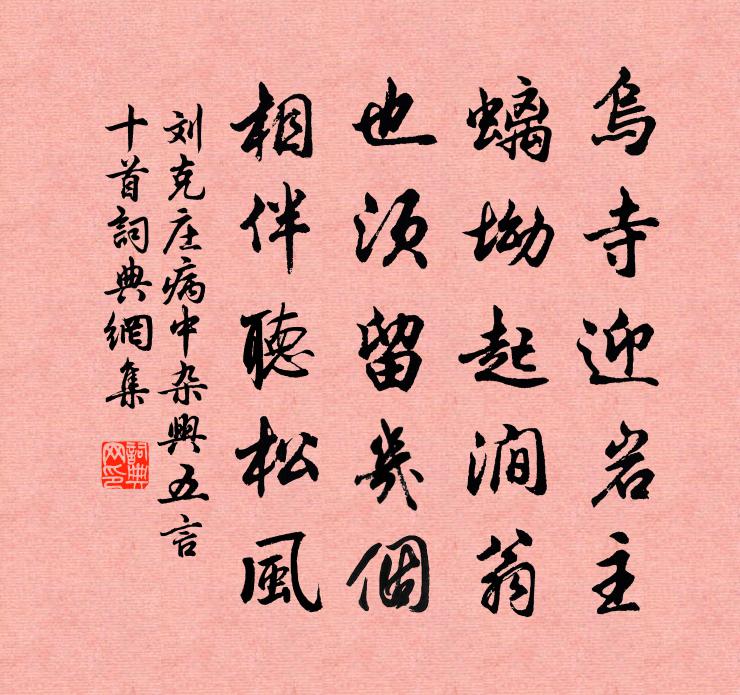 烏寺迎岩主
螭坳起澗翁
也須留幾個
相伴聽松風
刘克庄病中杂興五言
十首詞典網集
詞典網印